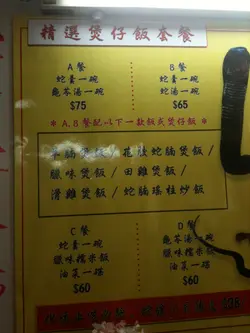 精選煲仔飯套餐
A餐 B餐
蛇羹一碗 蛇羹一碗
龜苓湯一碗 蛇湯一碗
$75 $65
*A.B餐配以下一款飯或煲仔飯*
腸煲飯/花 蛇腩煲飯/
臘味煲飯/田雞煲飯/
滑雞煲飯/蛇腩瑤柱炒飯
C餐 D餐
蛇羹一碗 龜苓湯一碗
臘味糯米飯 臘味糯米飯
油菜一碟 油菜一碟
$60 $60